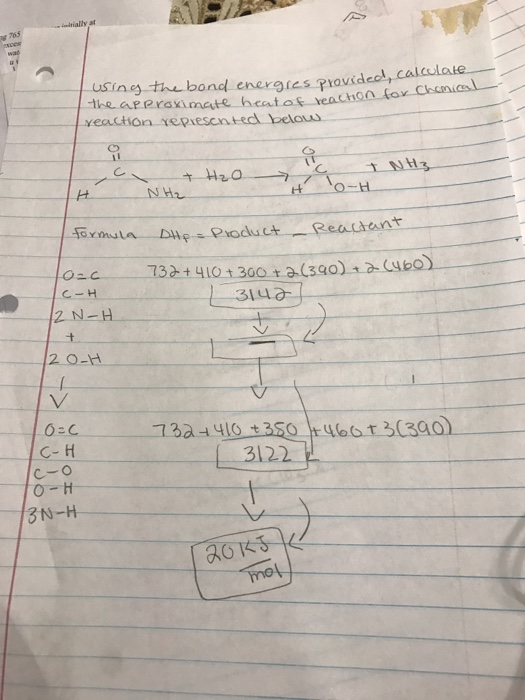 initially at
765
using the bond energies provided, calculate
the approximate heat of reaction for chemical
reaction represented below
O
C
H NH2 + H2O → O
C
H O-H + NH3
formula DHf = Product - Reactant
O=C 732 + 410 + 300 + 2(390) + 2(460)
C-H 3142
2 N-H
+
2 O-H
O=C 732 + 410 + 350 + 460 + 3(390)
C-H 3122
C-O
O-H
3N-H
20 KJ
mol